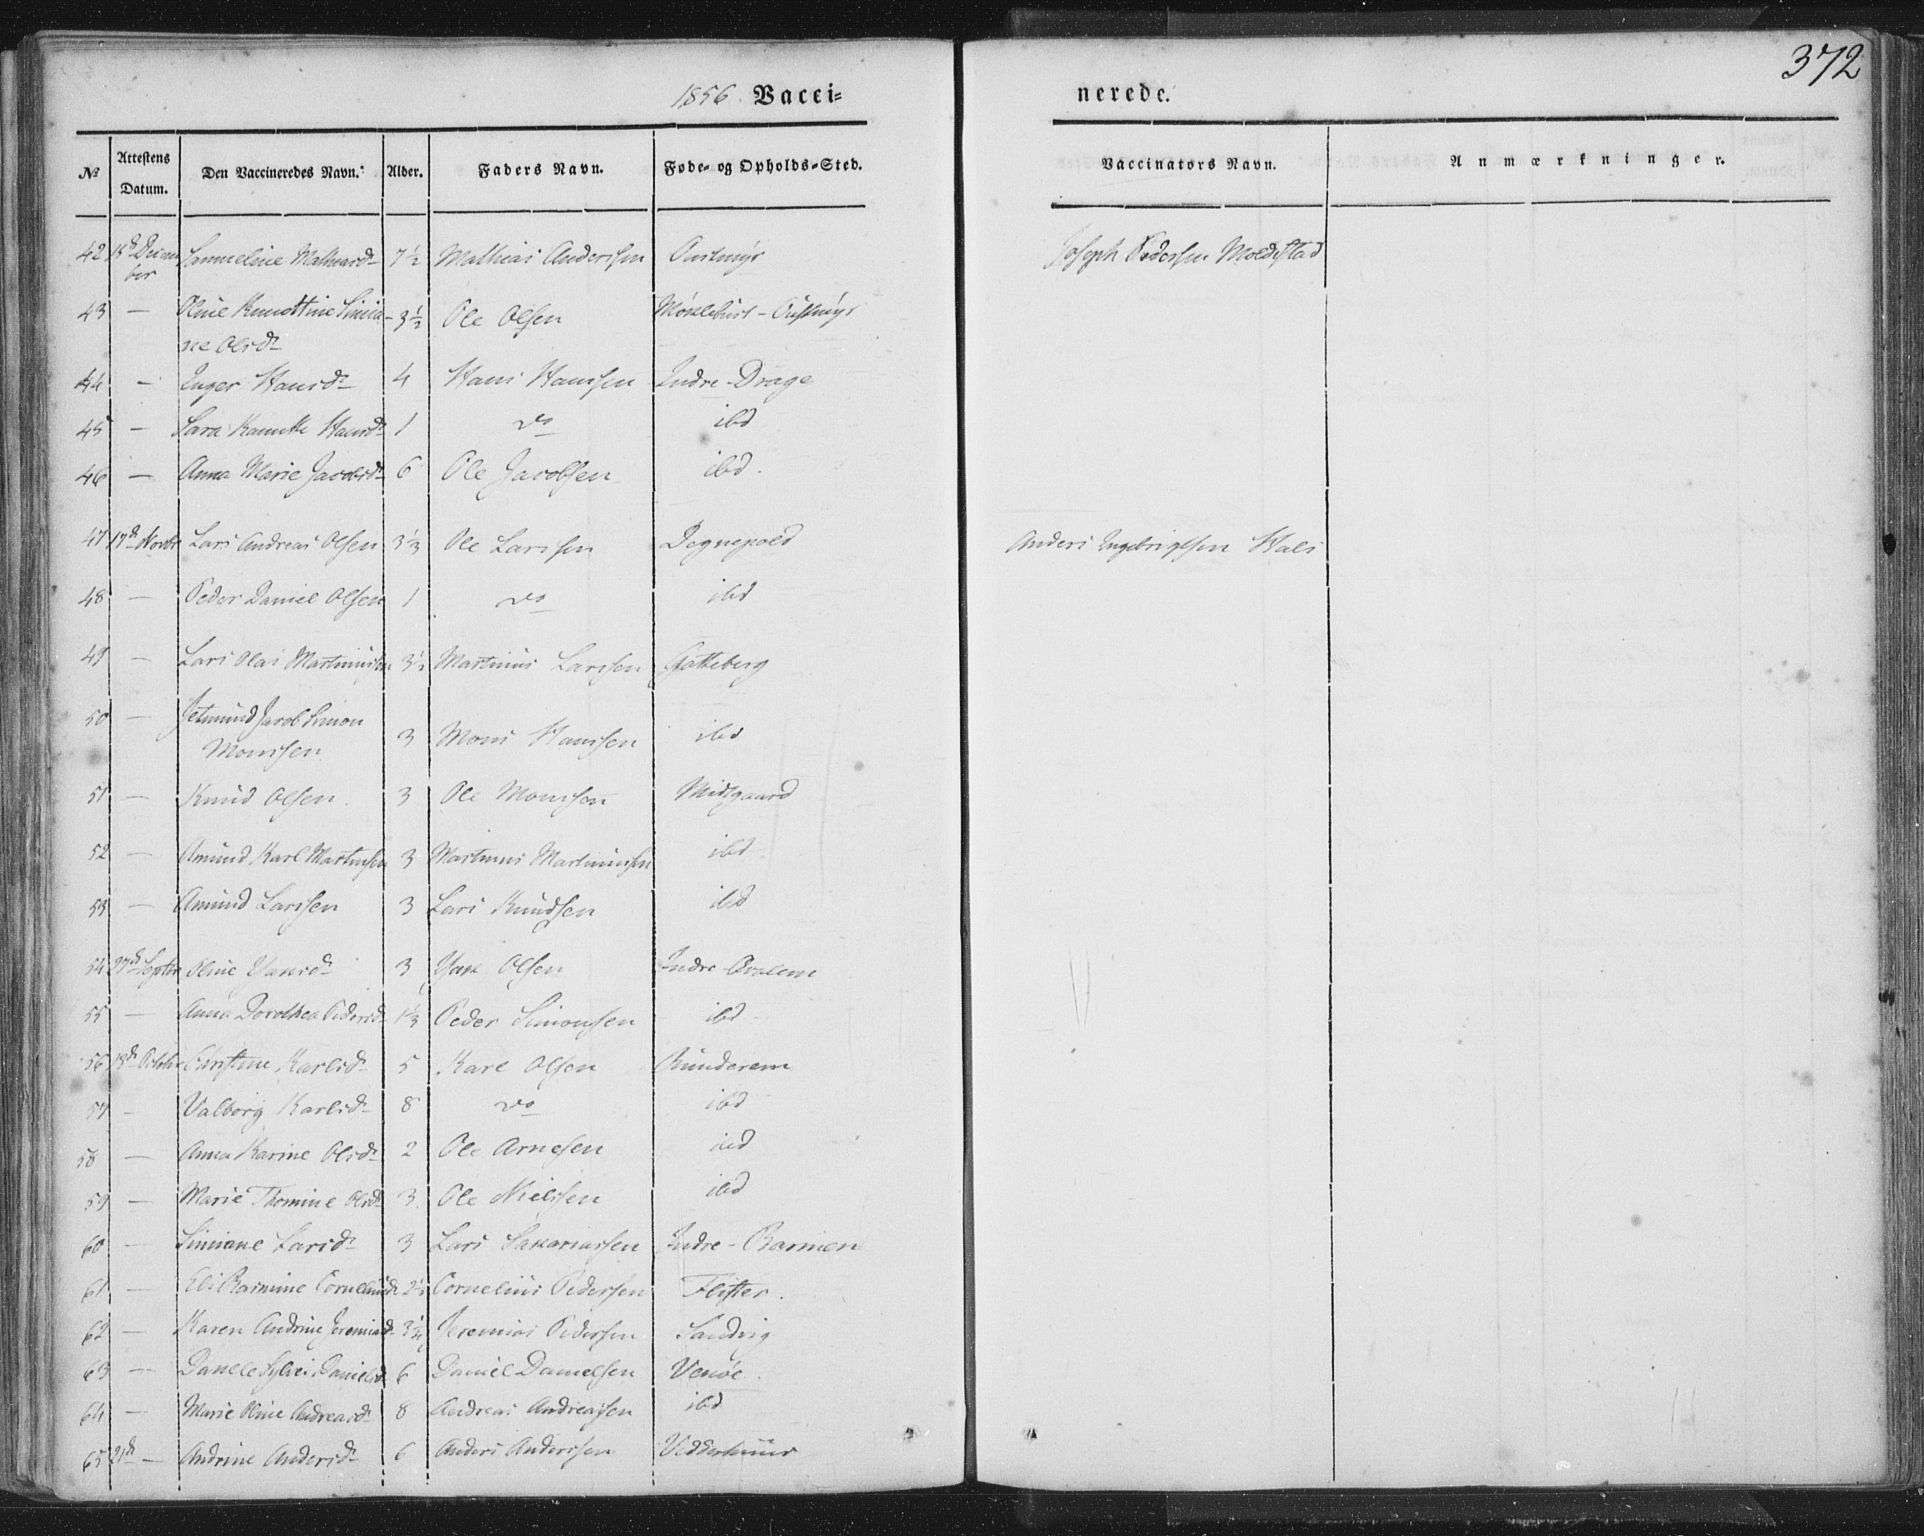 372
1856. Vacci=
nerede.
№ Attestens Datum. Den Vaccineredes Navn. Alder. Faders Navn. Føde- og Opholds-Sted. Vaccinators Navn. Anmærkninger.
42 Samueline Mathiasd. 7 1/2 Mathias Anderssen Joseph Pederssen Moldestad
43 — Oline 3 1/2 Ole Olsen
ne Olsd.
44 — Inger Hansd. 4 Hans Hanssen Indre Drage
45 — Sara Hansd. 1 do ibd
46 — Anna Marie Jacobsd. 6 Ole Jacobsen ibd.
47 17de Novbr Lars Andreas Olsen 3 1/3 Ole Larssen Degnepold Anders Engebrigtsen Hals
48 — Peder Daniel Olsen 1 do ibd
49 — Lars Olai Martinussen 3 1/2 Martinus Larssen Gotteberg
50 — Jetmund Jacob Simon
Monssen 3 Mons Hanssen ibd
51 — Knud Olsen. 3 Ole Monssen Midtgaard
52 — Amund Karl Martinsen 3 Martinus Martinussen ibd
53 — Amund Larssen 3 Lars Knudsen ibd
54 27de Septbr Oline 3 Olsen Indre
55 — Anna Dorothea Pedersd. 1 1/3 Peder Simonssen ibd
56 18de October Karlsd. 5 Karl Olsen Runderem
57 — Valborg Karlsd. 8 do ibd
58 — Anna Karine Olsd. 2 Ole Arnesen ibd
59 — Marie Thomine Olsd. 3. Ole Nielssen ibd
60 — Simiane Larsd. 3 Lars Sakariassen Indre-Barmen
61 — Eli Rasmine Corneliusd. 2 1/2 Cornelius Pederssen Flister.
62 — Karen Andrine Jeremiasd. 3 1/4 Jeremias Pederssen Sandvig
63 — Danielsd. 6 Daniel Danielsen Venøe.
64 — Marie Oline Andreasd. 8 Andreas Andreassen ibd
65 21de — Andrine Andersd. 6 Anders Anderssen